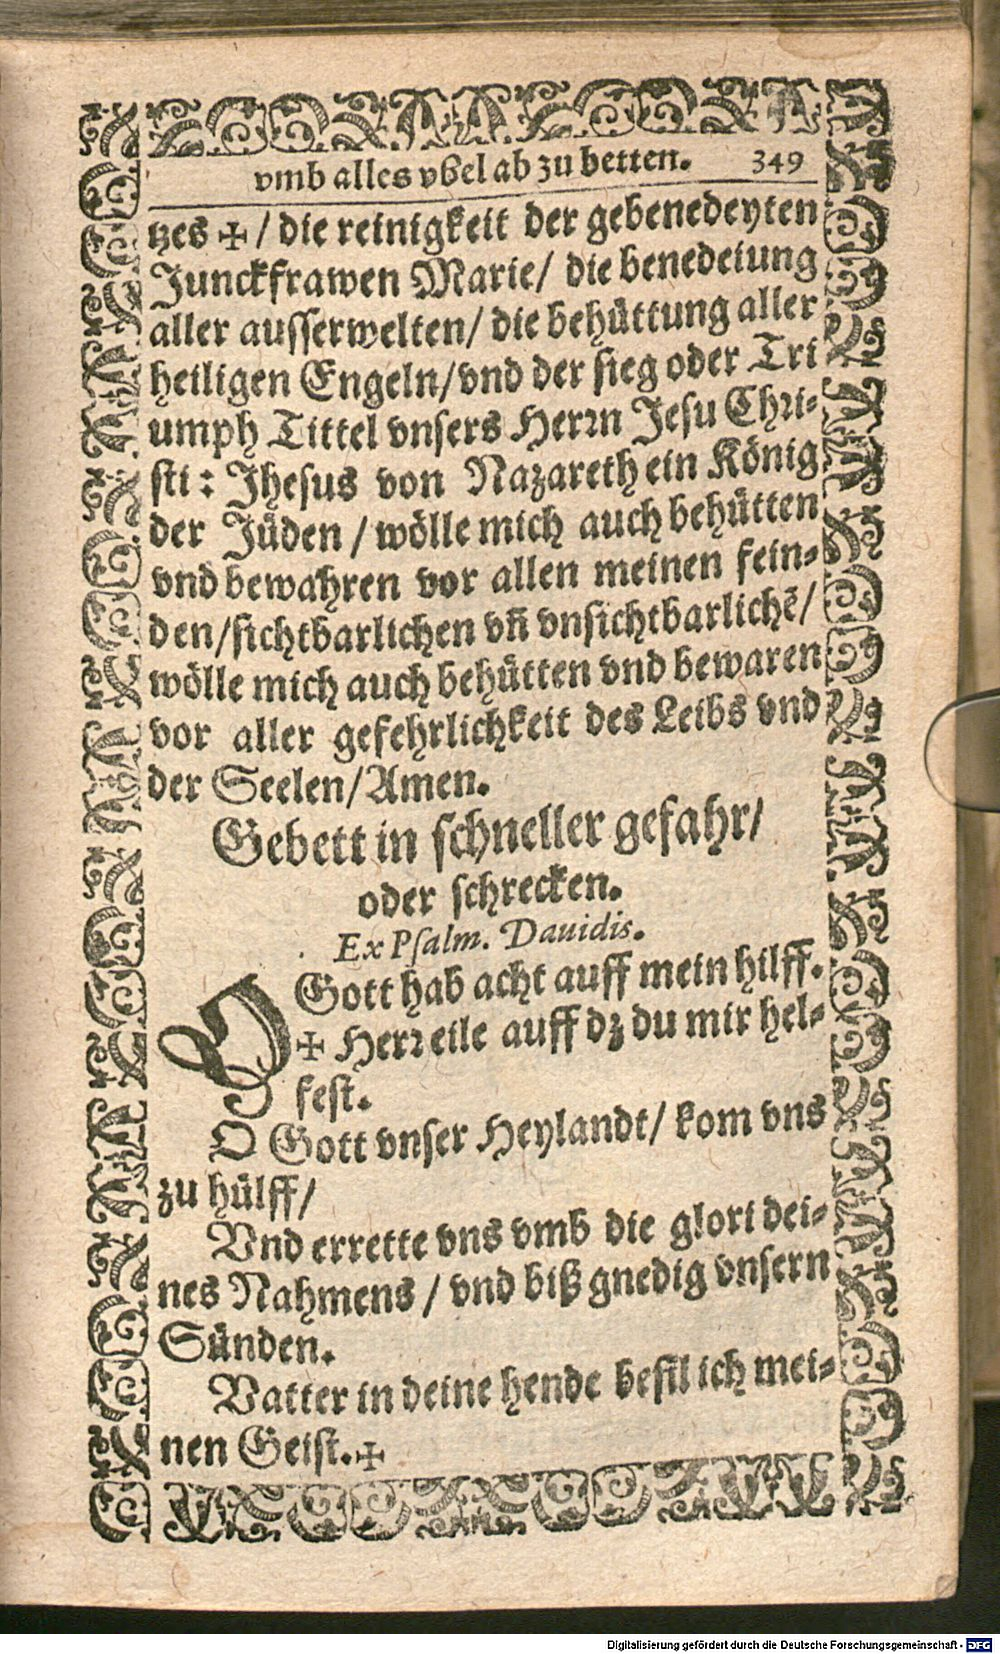 vmb alles vbel ab zu betten. 349
tzes ✠ / die reinigkeit der gebenedeyten
Junckfrawen Marie / die benedeiung
aller ausserwelten / die behüttung aller
heiligen Engeln / vnd der sieg oder Tri
umph Tittel vnsers Herrn Jesu Chri-
sti: Jhesus von Nazareth ein König
der Jüden / wölle mich auch behütten
vnd bewahren vor allen meinen fein-
den / sichtbarlichen vñ vnsichtbarlichē /
wölle mich auch behütten vnd bewaren
vor aller gefehrlichkeit des Leibs vnd
der Seelen / Amen.
Gebett in schneller gefahr /
oder schrecken.
Ex Psalm. Dauidis.
O Gott hab acht auff mein hilff.
✠ Herr eile auff dz du mir hel-
fest.
O Gott vnser Heylandt / kom vns
zu hülff /
Vnd errette vns vmb die glori dei-
nes Nahmens / vnd biß gnedig vnsern
Sünden.
Vatter in deine hende befil ich mei-
nen Geist. ✠
Digitalisierung gefördert durch die Deutsche Forschungsgemeinschaft - DFG